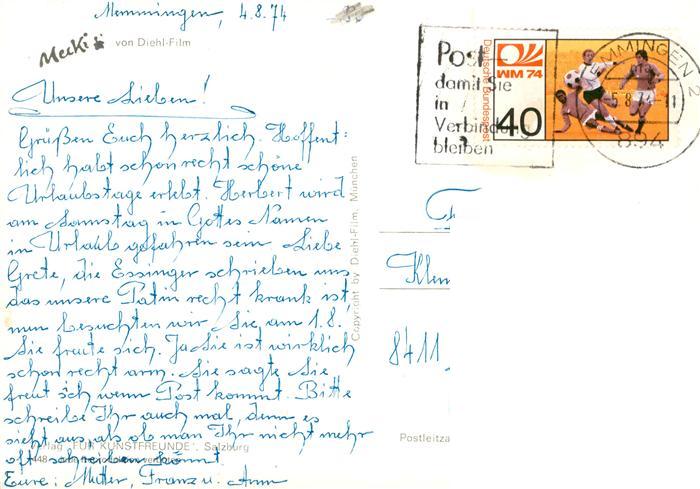 Memmingen, 4.8.74
Mecki von Diehl-Film
Unsere Lieben!
Grüßen Euch herzlich. Hoffent:
lich habt schon recht schöne
Urlaubstage erlebt. Herbert wird
am Samstag in Gottes Namen
in Urlaub gefahren sein Liebe
Grete, die Essinger schrieben uns
das unsere Patin recht krank ist,
nun besuchten wir Sie am 1.8.
Sie freute sich. Ja Sie ist wirklich
schon recht arm. Sie sagte Sie
freut sich wenn Post kommt. Bitte
schreibe Ihr auch mal, denn es
sieht aus, als ob man Ihr nicht mehr
oft schreiben könnt.
Eure: Mutter, Franz u. Anni
Verlag "FÜR KUNSTFREUNDE", Salzburg
Copyright by Diehl-Film, München
Post
damit Sie
in
Verbindung
bleiben
Deutsche Bundespost
WM 74
40
MMINGEN 2
5.8.74-11
894
Klem
8411
Postleitza